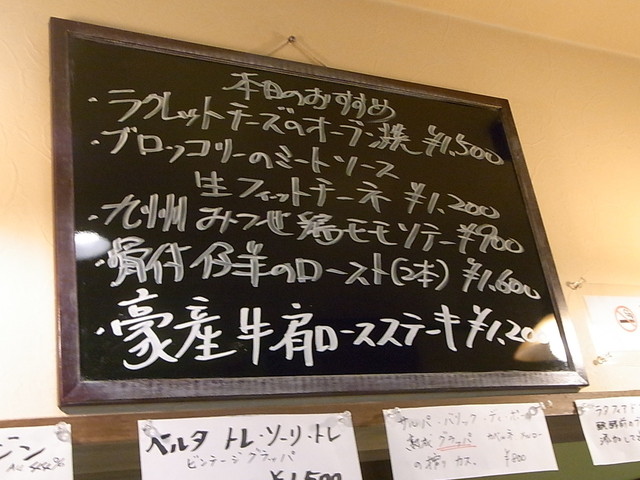 本日のおすすめ
・ラクレットチーズのオーブン焼 ¥1,500
・ブロッコリーのミートソース
生フィットチーネ ¥1,200
・九州みつせ鶏モモソテー ¥900
・骨付仔羊のロースト(2本) ¥1,600
・豪産牛肩ロースステーキ ¥1,200
ジン
ベルタ トレ・ソーリ・トレ
ビンテージグラッパ
¥1,500
サルパ・バリック・ディ・
熟成グラッパ
の搾りカス。 ¥800